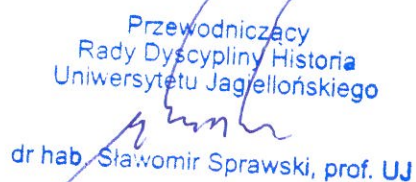 Przewodniczący
Rady Dyscypliny Historia
Uniwersytetu Jagiellońskiego
dr hab. Sławomir Sprawski, prof. UJ